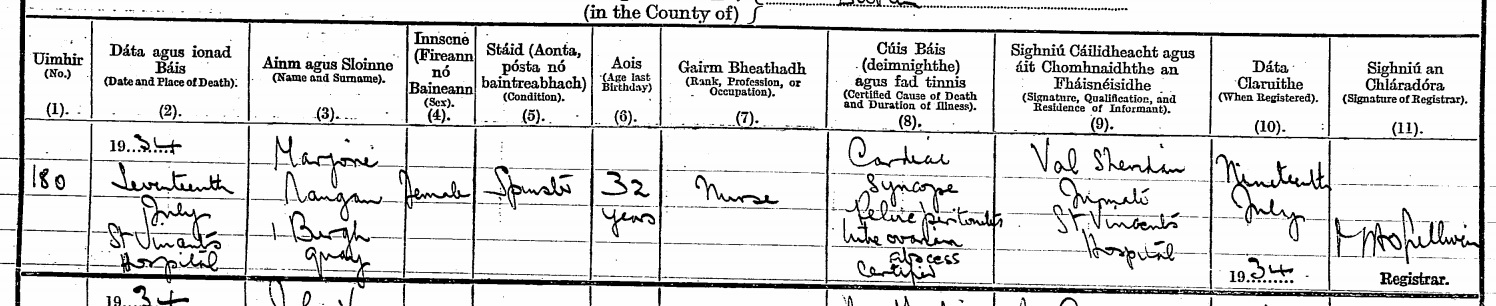 (in the County of)
Uimhir
(No.)
(1).
Dáta agus ionad
Báis
(Date and Place of Death).
(2).
Ainm agus Sloinne
(Name and Surname).
(3).
Innscne
(Fireann
nó
Baineann
(Sex).
(4).
Stáid (Aonta,
pósta nó
baintreabhach)
(Condition).
(5).
Aois
(Age last
Birthday)
(6).
Gairm Bheathadh
(Rank, Profession, or
Occupation).
(7).
Cúis Báis
(deimnighthe)
agus fad tinnis
(Certified Cause of Death
and Duration of Illness).
(8).
Sighniú Cáilidheacht agus
áit Chomhnaidhthe an
Fháisnéisidhe
(Signature, Qualification, and
Residence of Informant).
(9).
Dáta
Claruithe
(When Registered).
(10).
Sighniú an
Chláradóra
(Signature of Registrar).
(11).
180
1934
Seventeenth
July
St Vincents
Hospital
Marjorie
Nangan
1 Burgh
quay
Female
Spinster
32
years
Nurse
Cardiac
Syncope
Pelvic peritonitis
tubo ovarian
abscess
Certified
Val Sheridan
Inmate
St Vincents
Hospital
Nineteenth
July
1934
Registrar.
1934